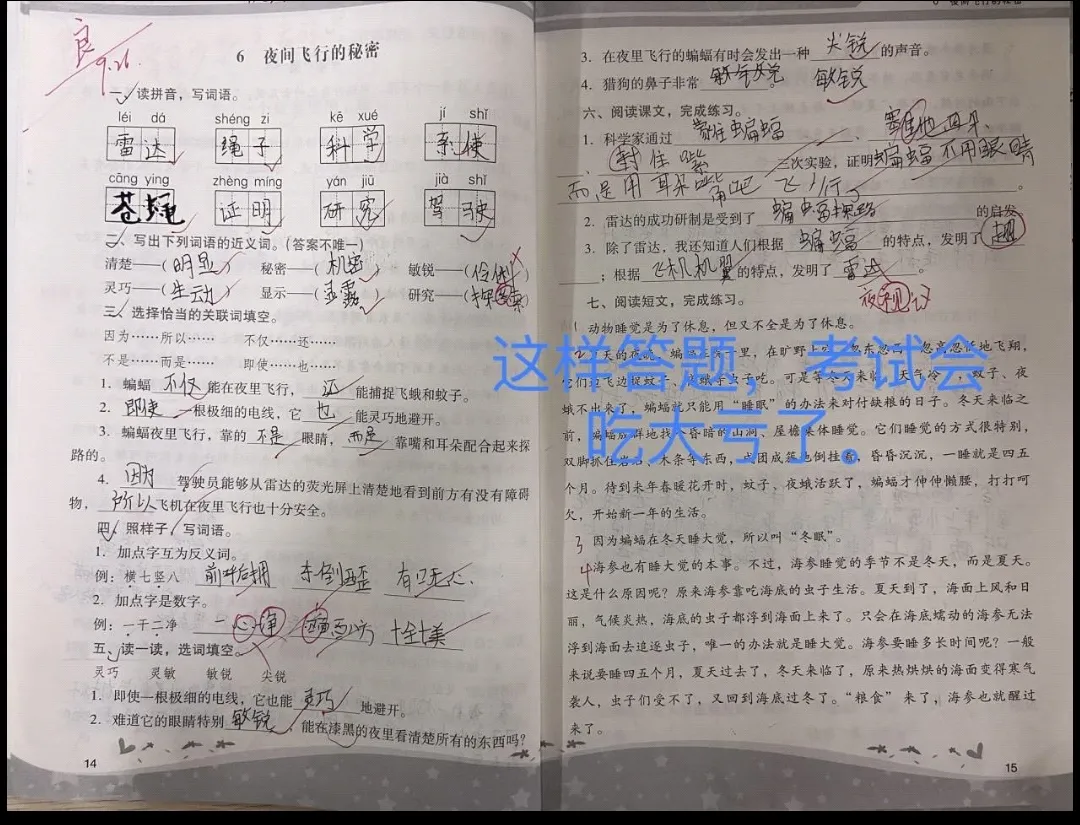 良
9.26.
6 夜间飞行的秘密
一、读拼音，写词语。
léi dá shéng zi kē xué jí shǐ
雷达 绳子 科学 系使
cāng ying zhèng míng yán jiū jià shǐ
苍蝇 证明 研究 驾驶
二、写出下列词语的近义词。（答案不唯一）
清楚——（明显） 秘密——（机密） 敏锐——（伶俐）
灵巧——（生动） 显示——（显露） 研究——（探索）
三、选择恰当的关联词填空。
因为……所以…… 不仅……还……
不是……而是…… 即使……也……
1. 蝙蝠 不仅 能在夜里飞行， 还 能捕捉飞蛾和蚊子。
2. 即使 一根极细的电线，它 也 能灵巧地避开。
3. 蝙蝠夜里飞行，靠的 不是 眼睛， 而是 靠嘴和耳朵配合起来探
路的。
4. 因为 驾驶员能够从雷达的荧光屏上清楚地看到前方有没有障碍
物， 所以 飞机在夜里飞行也十分安全。
四、照样子，写词语。
1. 加点字互为反义词。
例：横七竖八 前呼后拥 东倒西歪 有口无心
2. 加点字是数字。
例：一干二净 一心 十全十美
五、读一读，选词填空。
灵巧 灵敏 敏锐 尖锐
1. 即使一根极细的电线，它也能 灵巧 地避开。
2. 难道它的眼睛特别 敏锐 ，能在漆黑的夜里看清楚所有的东西吗？
14
6 夜间飞行的秘密
3. 在夜里飞行的蝙蝠有时会发出一种 尖锐 的声音。
4. 猎狗的鼻子非常 敏锐 。 敏锐
六、阅读课文，完成练习。
1. 科学家通过 蒙住蝙蝠
、 封住嘴 三次实验，证明 蝙蝠不用眼睛
而是用耳朵 嘴巴飞行 。
2. 雷达的成功研制是受到了 蝙蝠探路 的启发。
3. 除了雷达，我还知道人们根据 蝙蝠 的特点，发明了 超
；根据 飞机机翼 的特点，发明了 雷达 。
夜视仪
七、阅读短文，完成练习。
1 动物睡觉是为了休息，但又不全是为了休息。
2 夏天的夜晚，蝙蝠三五一里，在旷野上空忽东忽西、忽高忽低地飞翔，
它们边飞边捉蚊子、夜蛾等虫子吃。可是等冬天来临，天气冷了，蚊子、夜
蛾不出来了，蝙蝠就只能用“睡眠”的办法来对付缺粮的日子。冬天来临之
前，蝙蝠成群地找个昏暗的山洞、屋檐集体睡觉。它们睡觉的方式很特别，
双脚抓住岩石、木条等东西，成团成簇地倒挂着，昏昏沉沉，一睡就是四五
个月。待到来年春暖花开时，蚊子、夜蛾活跃了，蝙蝠才伸伸懒腰，打打呵
欠，开始新一年的生活。
3 因为蝙蝠在冬天睡大觉，所以叫“冬眠”。
4 海参也有睡大觉的本事。不过，海参睡觉的季节不是冬天，而是夏天。
这是什么原因呢？原来海参靠吃海底的虫子生活。夏天到了，海面上风和日
丽，气候炎热，海底的虫子都浮到海面上来了。只会在海底蠕动的海参无法
浮到海面去追逐虫子，唯一的办法就是睡大觉。海参要睡多长时间呢？一般
来说要睡四五个月，夏天过去了，冬天来临了，原来热烘烘的海面变得寒气
袭人，虫子们受不了，又回到海底过冬了。“粮食”来了，海参也就醒过
来了。
15
这样答题，考试会
吃大亏了。